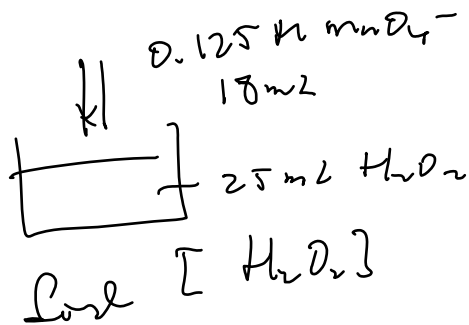 0.125 M MnO₄⁻
18 mL
25 mL H₂O₂
find [H₂O₂]